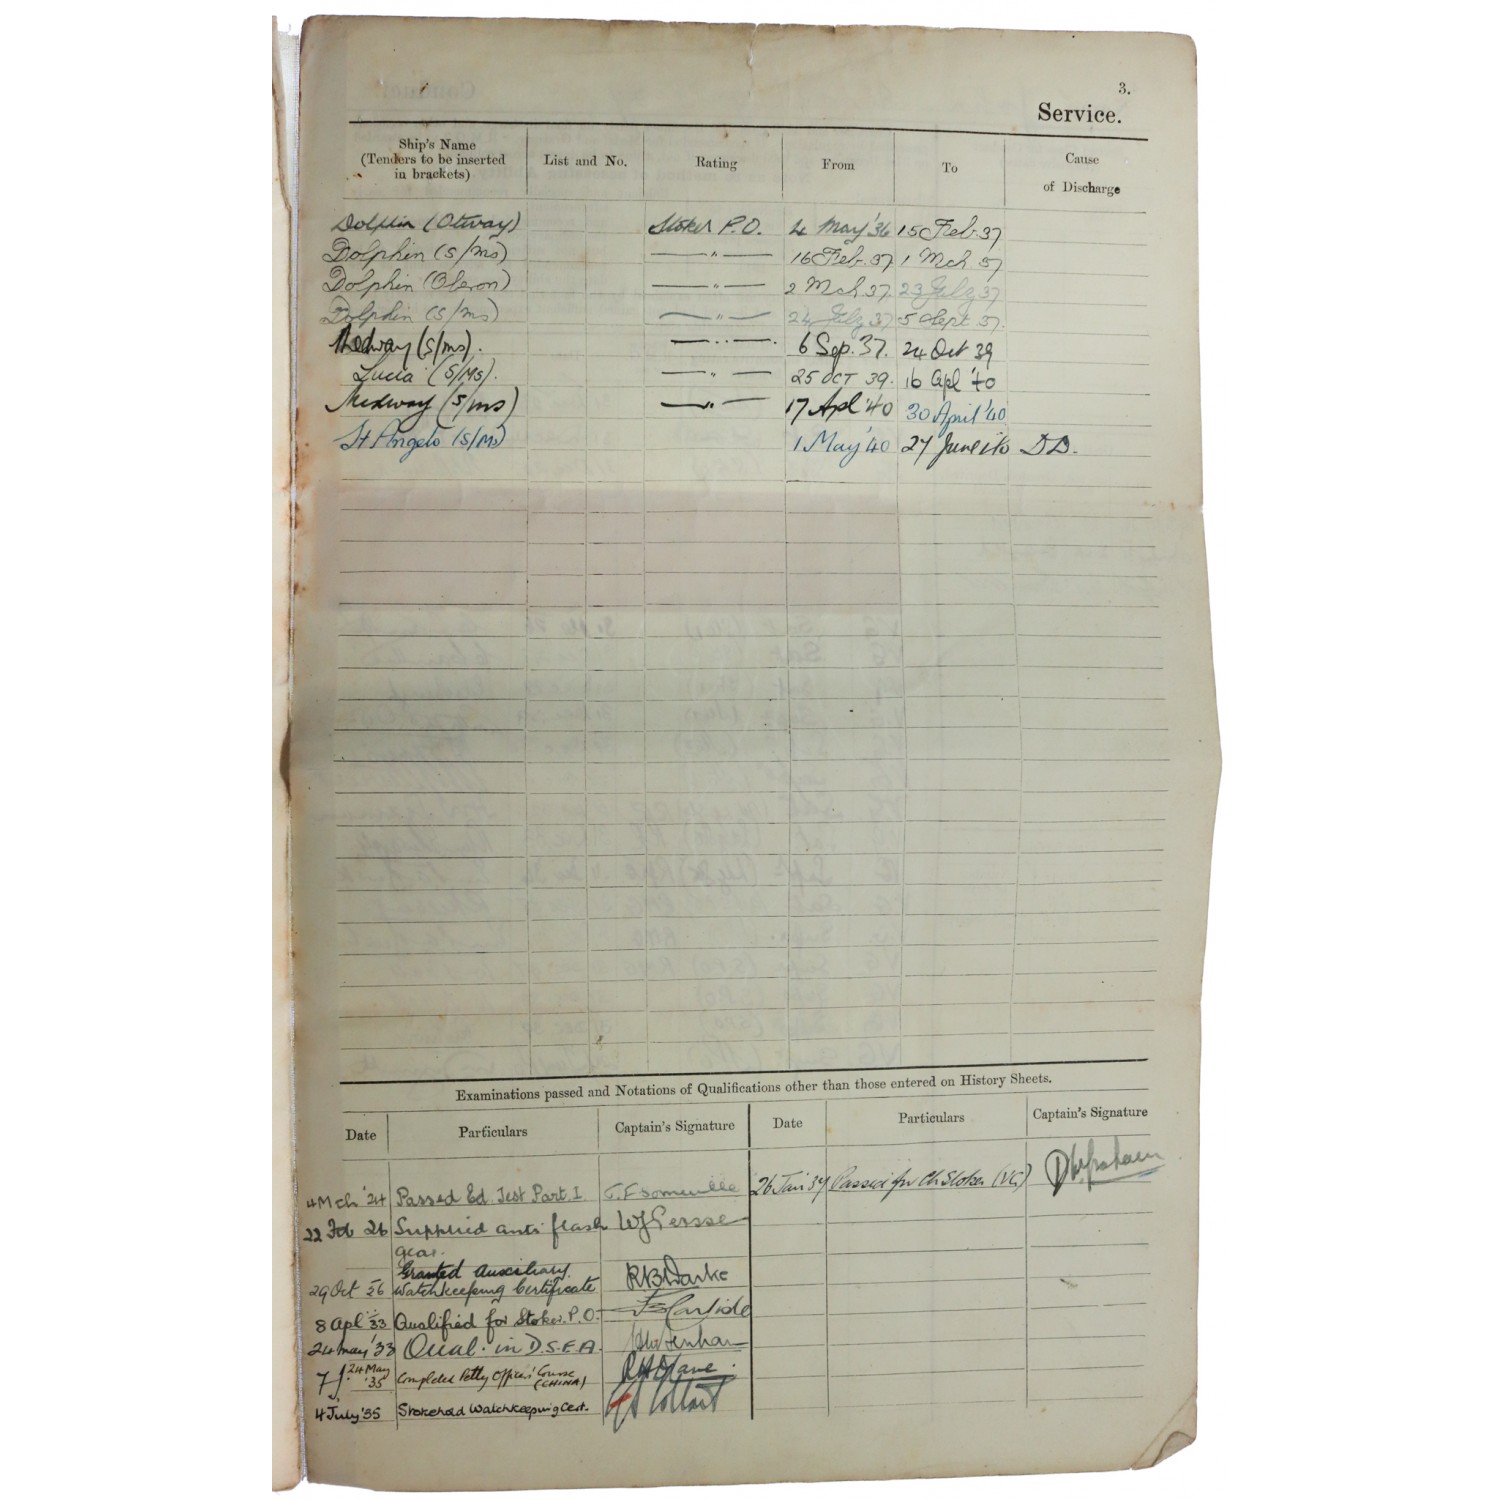 3.
Service.
Ship's Name
(Tenders to be inserted
in brackets)
List and No.
Rating
From
To
Cause
of Discharge
Dolphin (Otway) Stoker P.O. 4 May '36 15 Feb. 37
Dolphin (S/ms) —"— 16 Feb. 37 1 Mch 37
Dolphin (Oberon) —"— 2 Mch 37. 23 July 37
Dolphin (S/ms) —"— 24 July 37 5 Sept 37.
Medway (S/ms). —"— 6 Sep. 37. 24 Oct 39
Lucia (S/Ms). —"— 25 OCT 39. 16 Apl '40
Medway (S/ms) —"— 17 Apl '40 30 April '40
St Angelo (S/Ms) 1 May '40 27 June 40 DD.
Examinations passed and Notations of Qualifications other than those entered on History Sheets.
Date Particulars Captain's Signature Date Particulars Captain's Signature
4 Mch '24 Passed Ed. Test Part I J. F Somerville 26 Jan 37 Passed for Ch. Stoker (VG)
22 Feb 26 Supplied anti flash
gear.
Granted Auxiliary
29 Oct 26 Watchkeeping Certificate
8 Apl '33 Qualified for Stoker P.O. Carlisle
24 May '33 Qual. in D.S.E.A.
7 24 May '35 Completed Petty Officers' Course
(CHINA)
4 July '35 Stokehold Watchkeeping Cert.